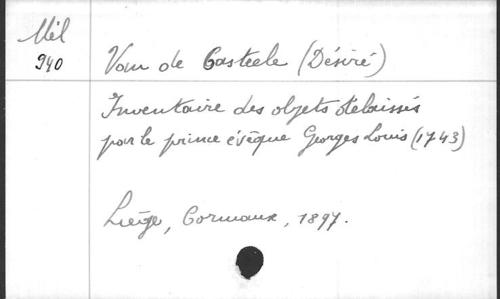 Mél
940
Van de Casteele (Désiré)
Inventaire des objets délaissés
par le prince évêque Georges Louis (1743)
Liège, Cormaux, 1897.